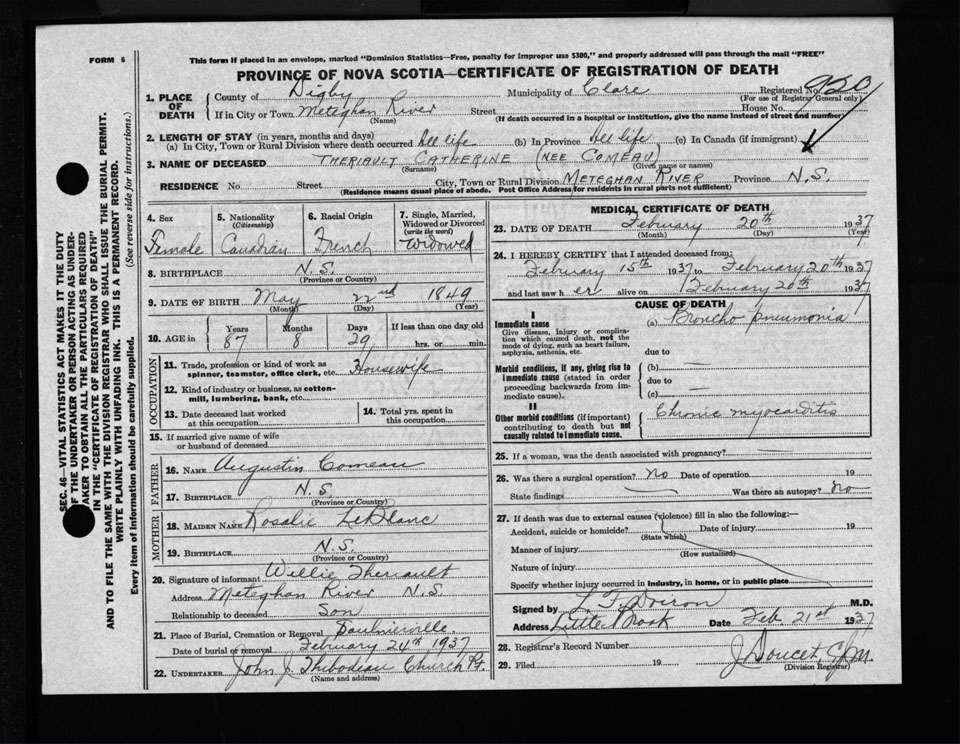 FORM 6
This form if placed in an envelope, marked "Dominion Statistics—Free, penalty for improper use $300," and properly addressed will pass through the mail "FREE"
PROVINCE OF NOVA SCOTIA—CERTIFICATE OF REGISTRATION OF DEATH
Registered No.
(For use of Registrar General only)
1. PLACE OF DEATH
County of Digby Municipality of Clare
If in City or Town Meteghan River Street House No.
(Name) (If death occurred in a hospital or institution, give the name instead of street and number)
2. LENGTH OF STAY (in years, months and days)
(a) In City, Town or Rural Division where death occurred All life (b) In Province All life (c) In Canada (if immigrant)
3. NAME OF DECEASED THERIAULT CATHERINE (NEE COMEAU)
(Surname) (Given name or names)
RESIDENCE No. Street City, Town or Rural Division METEGHAN RIVER Province N.S.
(Residence means usual place of abode. Post Office Address for residents in rural parts not sufficient)
4. Sex Female
5. Nationality (Citizenship) Canadian
6. Racial Origin French
7. Single, Married, Widowed or Divorced (write the word) Widowed
8. BIRTHPLACE N.S.
(Province or Country)
9. DATE OF BIRTH May 22nd 1849
(Month) (Day) (Year)
10. AGE in Years 87 Months 8 Days 29 If less than one day old hrs. or min.
OCCUPATION
11. Trade, profession or kind of work as spinner, teamster, office clerk, etc. Housewife
12. Kind of industry or business, as cotton-mill, lumbering, bank, etc.
13. Date deceased last worked at this occupation
14. Total yrs. spent in this occupation
15. If married give name of wife or husband of deceased
FATHER
16. NAME Augustin Comeau
17. BIRTHPLACE N.S.
(Province or Country)
MOTHER
18. MAIDEN NAME Rosalie LeBlanc
19. BIRTHPLACE N.S.
(Province or Country)
20. Signature of informant Willie Theriault
Address Meteghan River N.S.
Relationship to deceased Son
21. Place of Burial, Cremation or Removal Saulnierville
Date of burial or removal February 24th 1937
22. UNDERTAKER John J. Thibodeau Church Pt.
(Name and address)
MEDICAL CERTIFICATE OF DEATH
23. DATE OF DEATH February 20th 1937
(Month) (Day) (Year)
24. I HEREBY CERTIFY that I attended deceased from:
February 15th 1937 to February 20th 1937
and last saw her alive on February 20th 1937
CAUSE OF DEATH
I
Immediate cause (a) Broncho pneumonia
Give disease, injury or complication which caused death, not the mode of dying, such as heart failure, asphyxia, asthenia, etc.
due to
Morbid conditions, if any, giving rise to immediate cause (stated in order proceeding backwards from immediate cause).
(b)
due to
(c)
II
Other morbid conditions (if important) contributing to death but not causally related to immediate cause.
Chronic myocarditis
25. If a woman, was the death associated with pregnancy?
26. Was there a surgical operation? No Date of operation 19
State findings Was there an autopsy? No
27. If death was due to external causes (violence) fill in also the following:—
Accident, suicide or homicide? Date of injury 19
(State which)
Manner of injury
(How sustained)
Nature of injury
Specify whether injury occurred in industry, in home, or in public place
Signed by L. F. Doiron M.D.
Address Little Brook Date Feb. 21st 1937
28. Registrar's Record Number
29. Filed 19 J. Doucet,
(Division Registrar)
SEC. 46—VITAL STATISTICS ACT MAKES IT THE DUTY
OF THE UNDERTAKER OR PERSON ACTING AS UNDER-
TAKER TO OBTAIN ALL THE PARTICULARS REQUIRED
IN THE "CERTIFICATE OF REGISTRATION OF DEATH"
AND TO FILE THE SAME WITH THE DIVISION REGISTRAR WHO SHALL ISSUE THE BURIAL PERMIT.
WRITE PLAINLY WITH UNFADING INK. THIS IS A PERMANENT RECORD.
Every item of information should be carefully supplied. (See reverse side for instructions.)